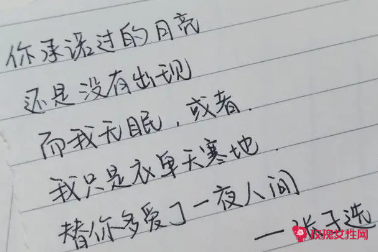 你承诺过的月亮
还是没有出现
而我无眠，或者.
我只是衣单天寒地.
替你多爱了一夜人间
—张子选
玫瑰女性网